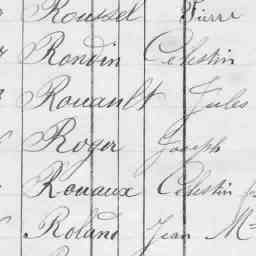 Roussel Pierre
Rondin Celestin
Rouault Jules
Roger Joseph
Rouaux Celestin
Roland Jean M